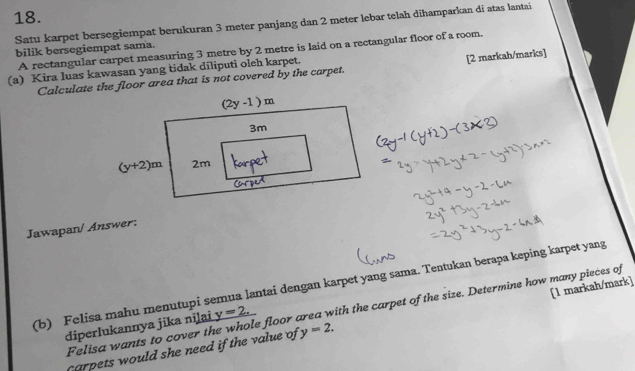 18.
Satu karpet bersegiempat berukuran 3 meter panjang dan 2 meter lebar telah dihamparkan di atas lantai
bilik bersegiempat sama.
A rectangular carpet measuring 3 metre by 2 metre is laid on a rectangular floor of a room.
(a) Kira luas kawasan yang tidak diliputi oleh karpet.
[2 markah/marks]
Calculate the floor area that is not covered by the carpet.
(2y -1) m
3m
(y+2)m
2m
karpet
carpet
2y²+3y-2-6
=2y²+3y-2-6
Jawapan/ Answer:
(b) Felisa mahu menutupi semua lantai dengan karpet yang sama. Tentukan berapa keping karpet yang
diperlukannya jika nilai y = 2.
[1 markah/mark]
Felisa wants to cover the whole floor area with the carpet of the size. Determine how many pieces of
carpets would she need if the value of y = 2.